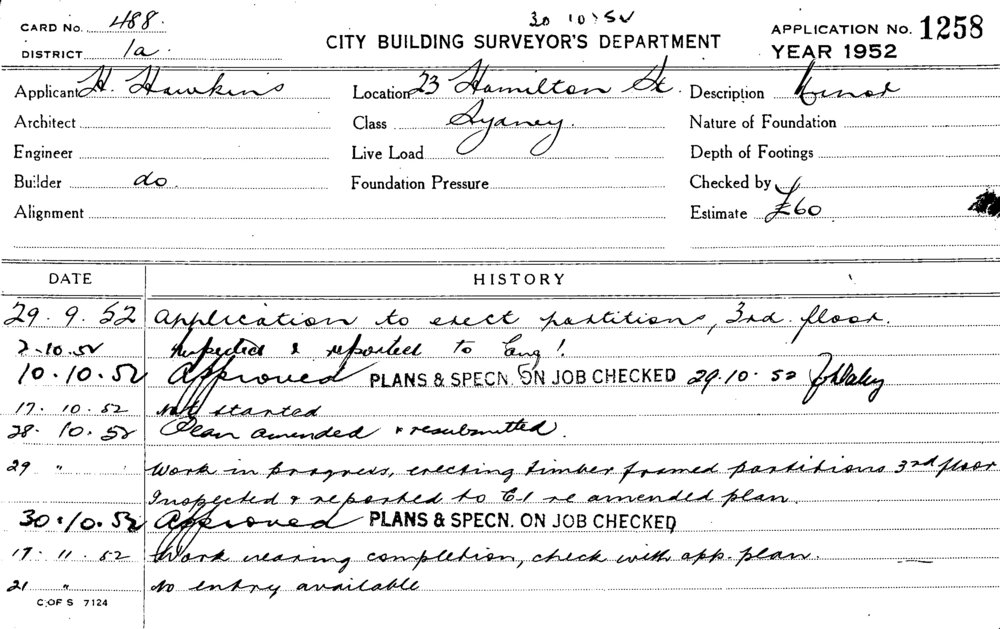 30 10.52
CARD No. 488.
DISTRICT 1a.
CITY BUILDING SURVEYOR'S DEPARTMENT
APPLICATION No. 1258
YEAR 1952
Applicant H. Hawkins
Location 23 Hamilton St.
Description Minor
Architect
Class Sydney.
Nature of Foundation
Engineer
Live Load
Depth of Footings
Builder do.
Foundation Pressure
Checked by
Alignment
Estimate £60
DATE HISTORY
29.9.52 Application to erect partitions, 3rd. floor.
2.10.52 Inspected & reported to Eng!
10.10.52 Approved PLANS & SPECN. ON JOB CHECKED 29.10.52
17.10.52 Not started
28.10.52 Plan amended & resubmitted.
29 " Work in progress, erecting timber framed partitions 3rd floor
Inspected & reported to E-1 re amended plan.
30.10.52 Approved PLANS & SPECN. ON JOB CHECKED
17.11.52 Work nearing completion, check with app. plan.
21 " No entry available
C OF S 7124